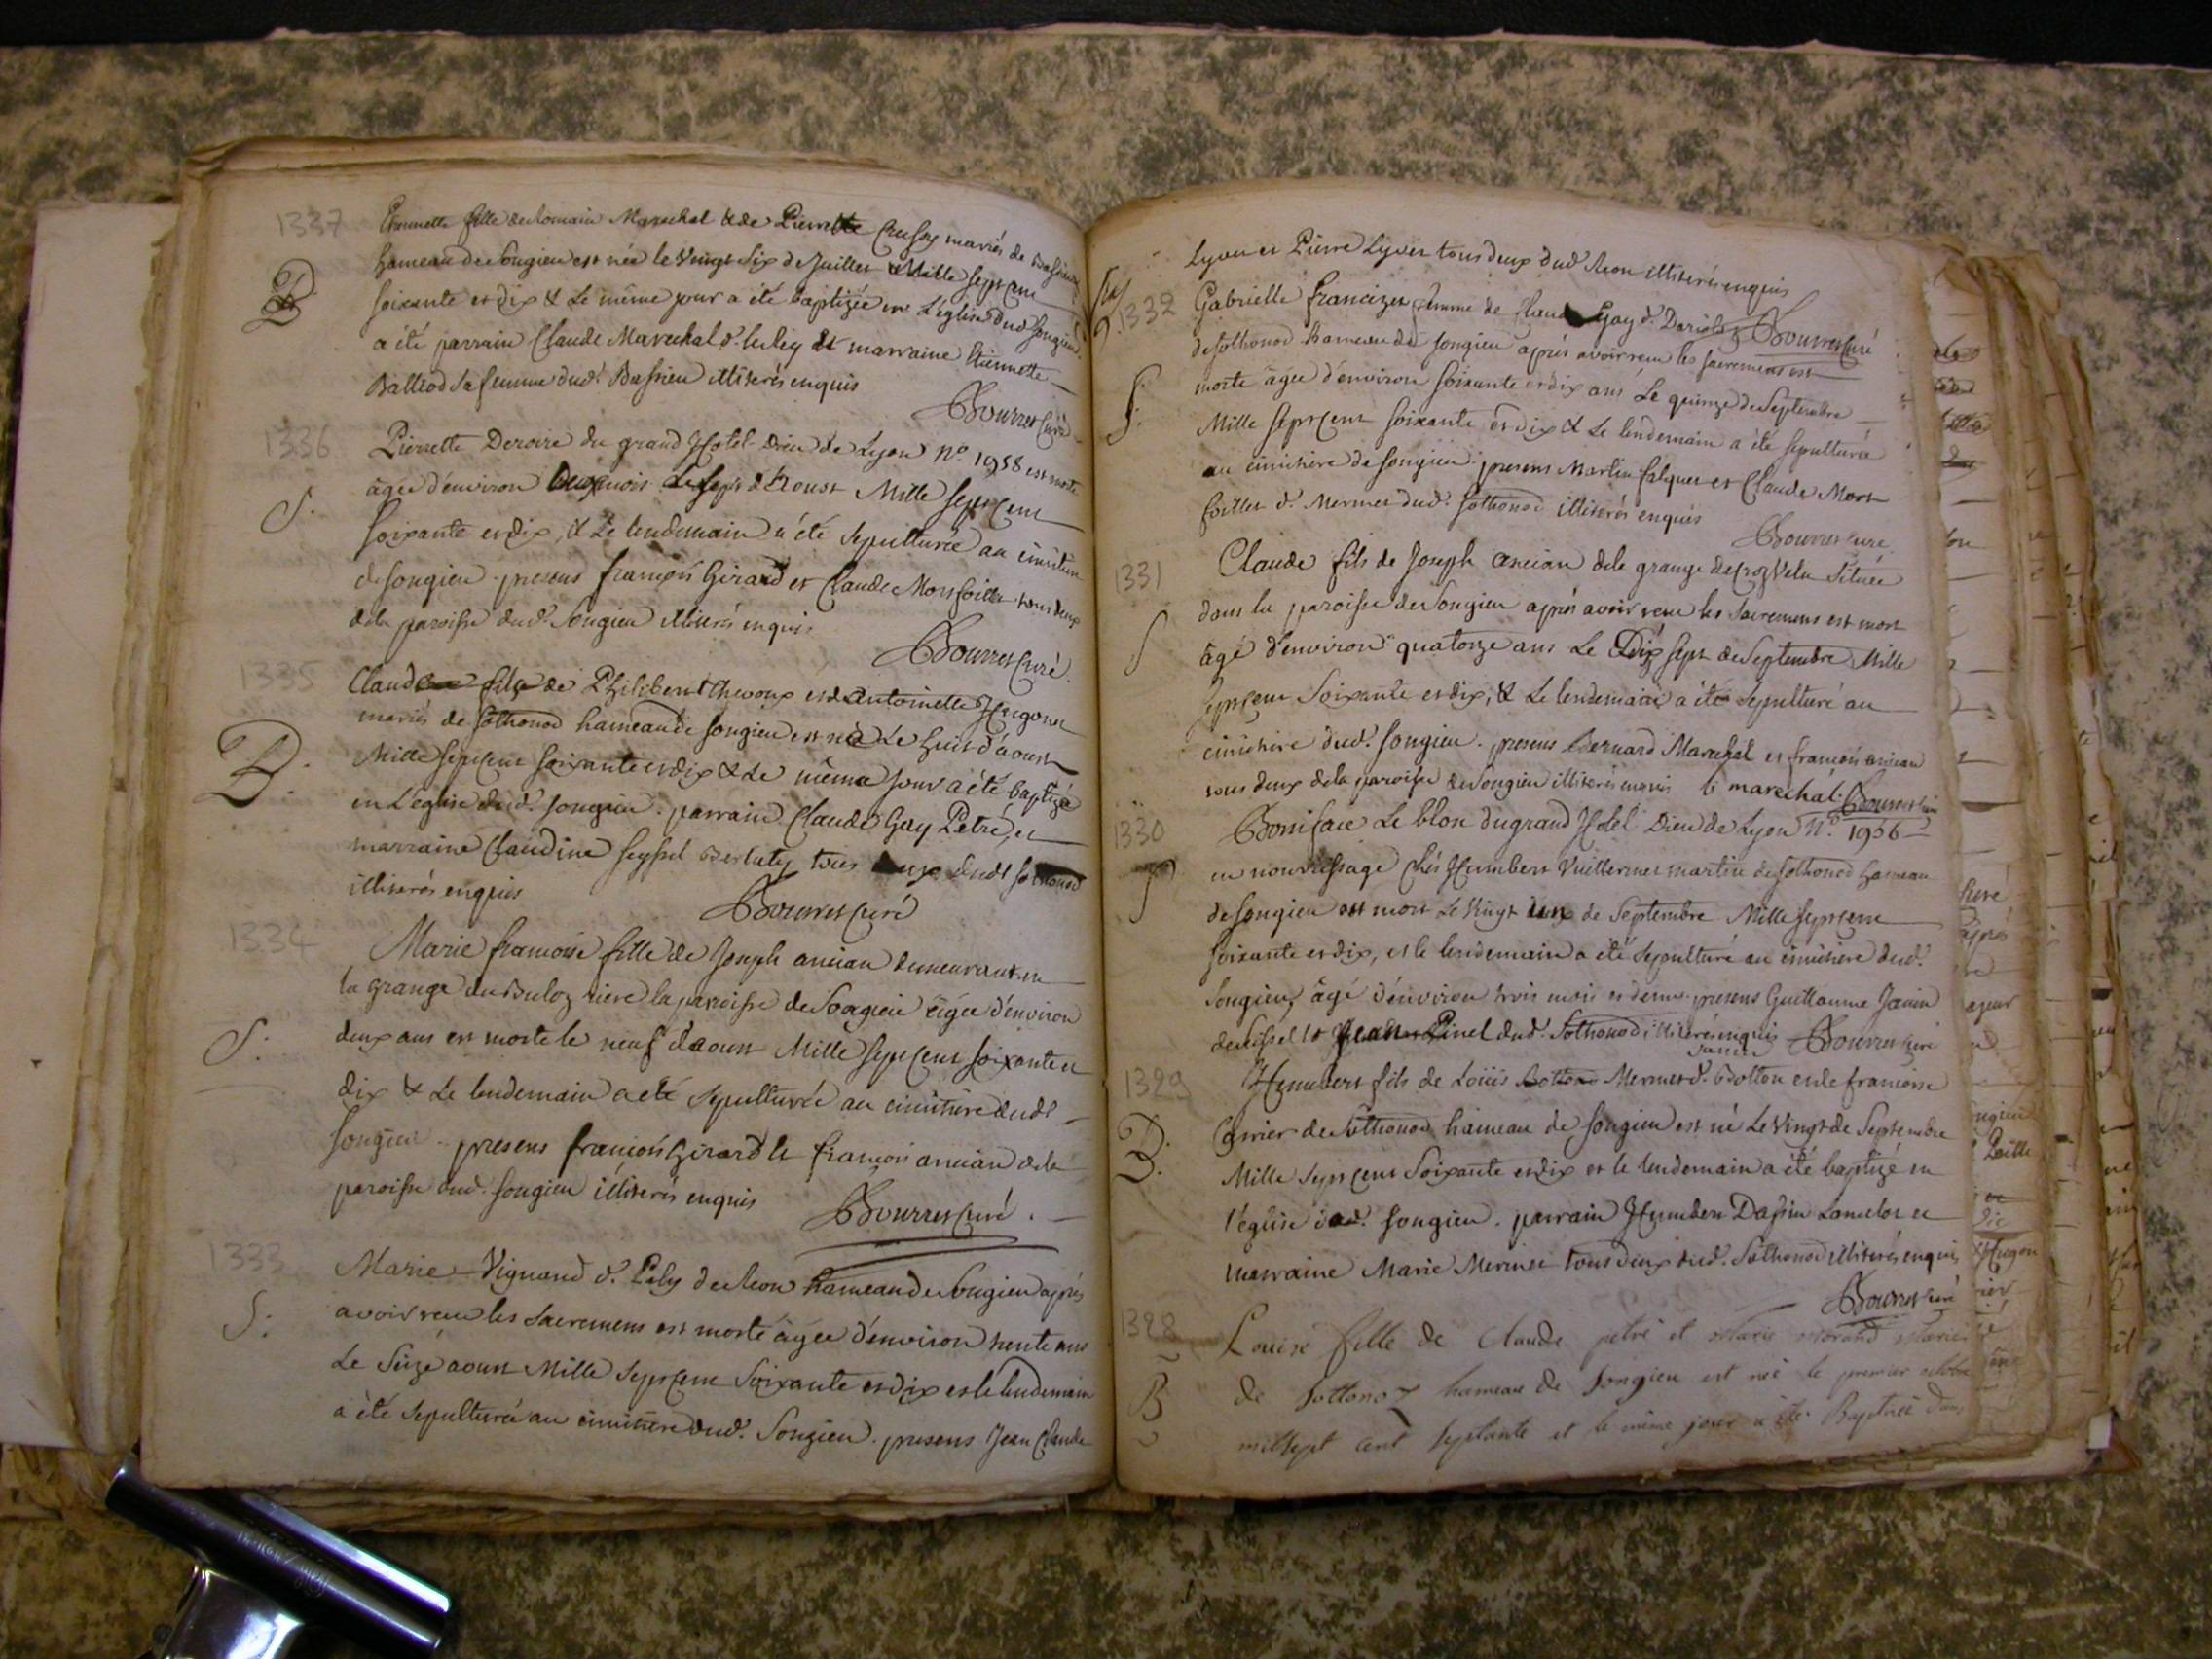 1337
Etiennette fille de Romain Marechal & de Pierrette mariés de Bassieu
hameau de Songieu est née le Vingt Six de Juillet Mille Sept Cent
soixante et dix & Le même jour a été baptizée en L'église dud. Songieu.
B.
a été parrain Claude Marechal d. et marraine Etiennette
Balleod sa femme dud. Bassieu illiterés enquis
Bourret Curé
1336
Pierrette Deroire du grand Hotel Dieu de Lyon N.o 1958 est morte
âgée d'environ deux mois Le Sept d'Aoust Mille Sept Cent
S.
soixante et dix, & Le lendemain a été Sepulturée au cimitiere
de songieu. presens françois Girard et Claude Monfoiller tous deux
dela paroisse dud. Songieu illiterés enquis
Bourret Curé.
1335
Claude fils de Philibert Chevoux et d'Antoinette Hugonet
mariés de Sothonod hameau de songieu est né Le huit d'aoust
B.
Mille Sept Cent soixante et dix & Le même jour a été baptizé
en L'église dud. songieu. parrain Claude Gay Petré, et
marraine Claudine Seyssel Berluty tous deux dudt Sothonod
illiterés enquis
Bourret Curé
1334
Marie françoise fille de Joseph ancian demeurant en
la grange du Buloz riere la paroisse de Songieu âgée d'environ
S.
deux ans est morte le neuf d'aoust Mille Sept Cent soixante et
dix & Le lendemain a été Sepulturée au cimitiere dudt
songieu. presens françois Girard & françois ancian dela
paroisse dud. songieu illiterés enquis
Bourret Curé.
1333
Marie Vignand d. Paly de Reon hameau de Songieu après
S.
avoir receu les Sacremens est morte âgée d'environ trente ans
Le Seize aoust Mille Sept Cent Soixante et dix et le lendemain
a été Sepulturée au cimitiere dud. Songieu. presens Jean Claude
Lyver et Pierre Lyver tous deux dud. Reon illiterés enquis
Bourret Curé
1332
Gabrielle francizet femme de Claude Gay d. Dariolez
de Sothonod hameau de songieu après avoir receu les sacremens est
S.
morte âgée d'environ Soixante et dix ans Le quinze de Septembre
Mille Sept Cent soixante et dix & Le lendemain a été sepulturée
au cimitiere de songieu. presens Martin falquet et Claude Mon
foiller d. Mermet dud. Sothonod illiterés enquis
Bourret curé.
1331
Claude fils de Joseph ancian dela grange de Croz Velu Située
dans la paroisse de Songieu après avoir receu les Sacremens est mort
S
âgé d'environ quatorze ans Le Dix Sept de Septembre Mille
Sept Cent Soixante et dix, & Le lendemain a été Sepulturé au
cimitiere dud. songieu. presens Bernard Marechal et françois ancian
tous deux dela paroisse de Songieu illiterés enquis b marechal. Bourret curé
1330
Boniface Le blon du grand Hotel Dieu de Lyon N.o 1956
en nourrissage chés Humbert Vuillermet martin de Sothonod hameau
S
de songieu est mort Le Vingt un de Septembre Mille Sept Cent
soixante et dix, et le lendemain a été Sepulturé au cimitiere dud.
Songieu, âgé d'environ trois mois et demi. presens Guillaume Janin
& Jean Pinel dud. Sothonod illiterés enquis Bourret curé
1329
Humbert fils de Loüis Mermet d. Bolton et de françoise
Carrier de Sothonod hameau de songieu est né Le Vingt de Septembre
B.
Mille Sept Cent Soixante et dix et le lendemain a été baptizé en
l'église dud. songieu. parrain Humbert Dassin Lancelot et
marraine Marie Mermet tous deux dud. Sothonod illiterés enquis
Bourret curé
1328
Louise fille de Claude petré et Marie Morand Mariés
B
de Sottonod hameau de Songieu est née le premier octobre
mil sept cent septante et le même jour a été Baptisée dans